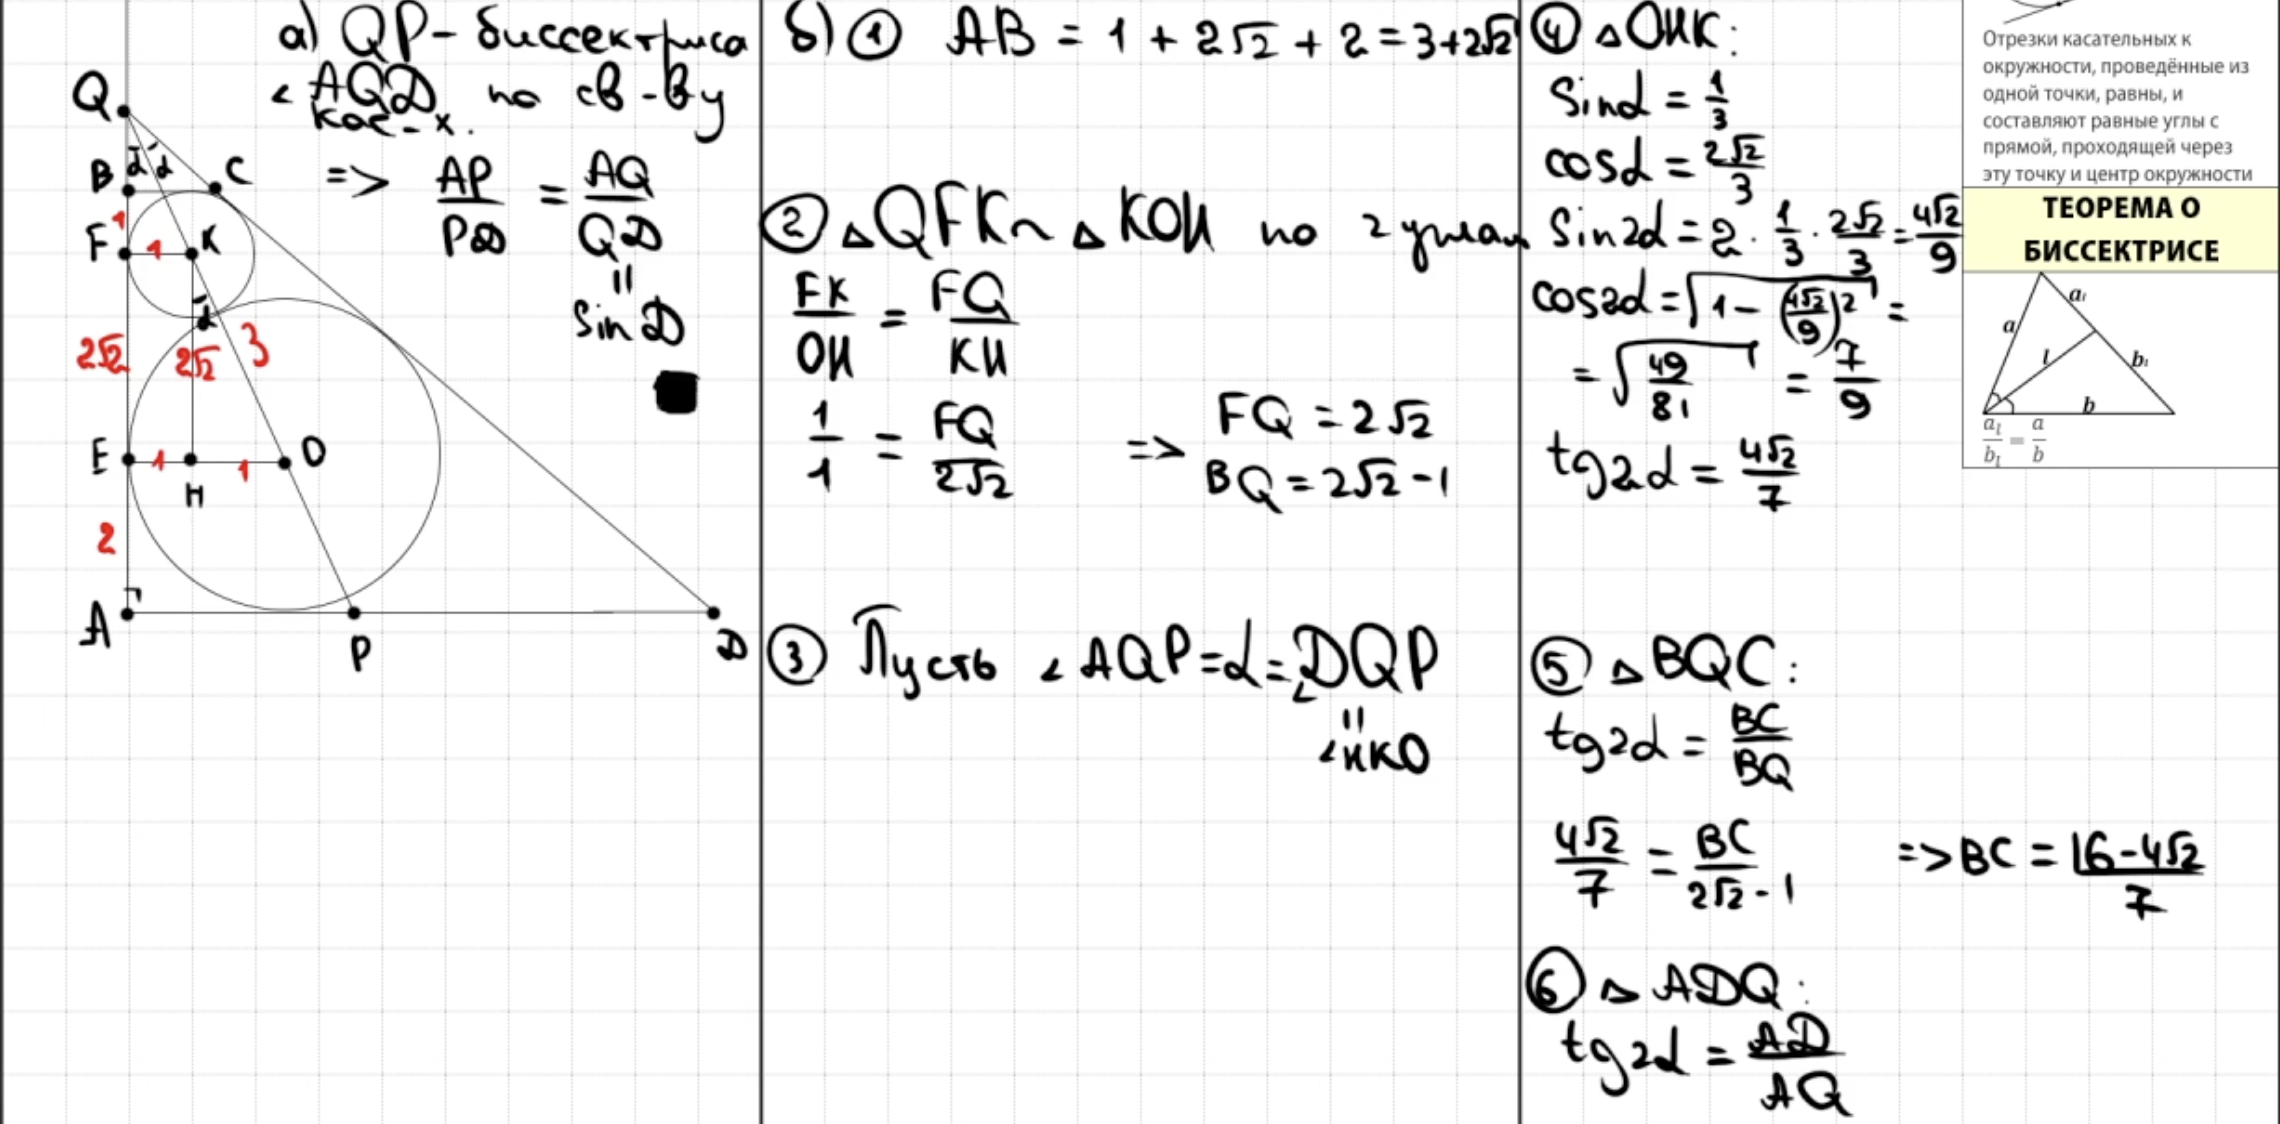 а) QP - биссектриса
∠AQD по св-ву
кас-х.
=> AP/PD = AQ/QD
||
sin D
Q
B
α
α
C
1
F
1
K
α
2√2
2√2
3
E
1
1
O
H
2
A
P
D
б) ① AB = 1 + 2√2 + 2 = 3+2√2
② △QFK ~ △KOH по 2 углам
FK/OH = FQ/KH
1/1 = FQ/2√2 => FQ = 2√2
BQ = 2√2 - 1
③ Пусть ∠AQP = α = ∠DQP
||
∠HKO
④ △OHK:
sinα = 1/3
cosα = 2√2/3
sin2α = 2 · 1/3 · 2√2/3 = 4√2/9
cos2α = √(1 - (4√2/9)²) =
= √(49/81) = 7/9
tg2α = 4√2/7
⑤ △BQC:
tg2α = BC/BQ
4√2/7 = BC/(2√2 - 1) => BC = (16-4√2)/7
⑥ △ADQ:
tg2α = AD/AQ
Отрезки касательных к
окружности, проведённые из
одной точки, равны, и
составляют равные углы с
прямой, проходящей через
эту точку и центр окружности
ТЕОРЕМА О
БИССЕКТРИСЕ
a
a₁
l
b₁
b
a₁/b₁ = a/b